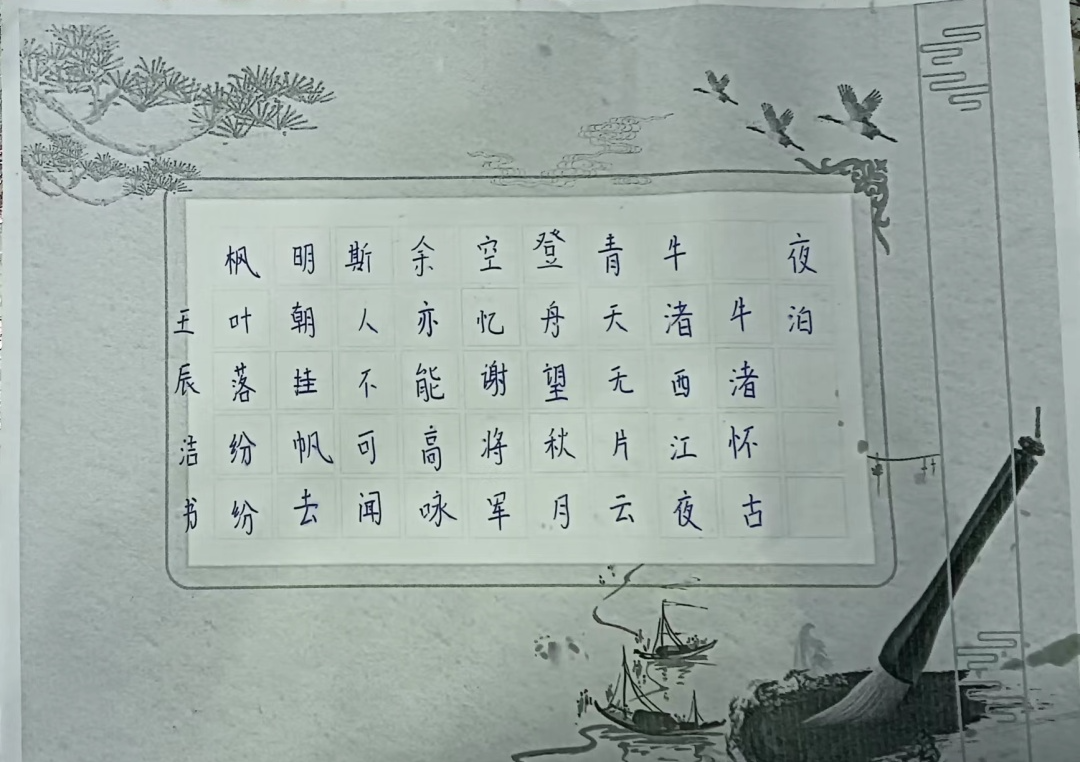 夜泊
牛渚怀古
牛渚西江夜
青天无片云
登舟望秋月
空忆谢将军
余亦能高咏
斯人不可闻
明朝挂帆去
枫叶落纷纷
王辰洁书